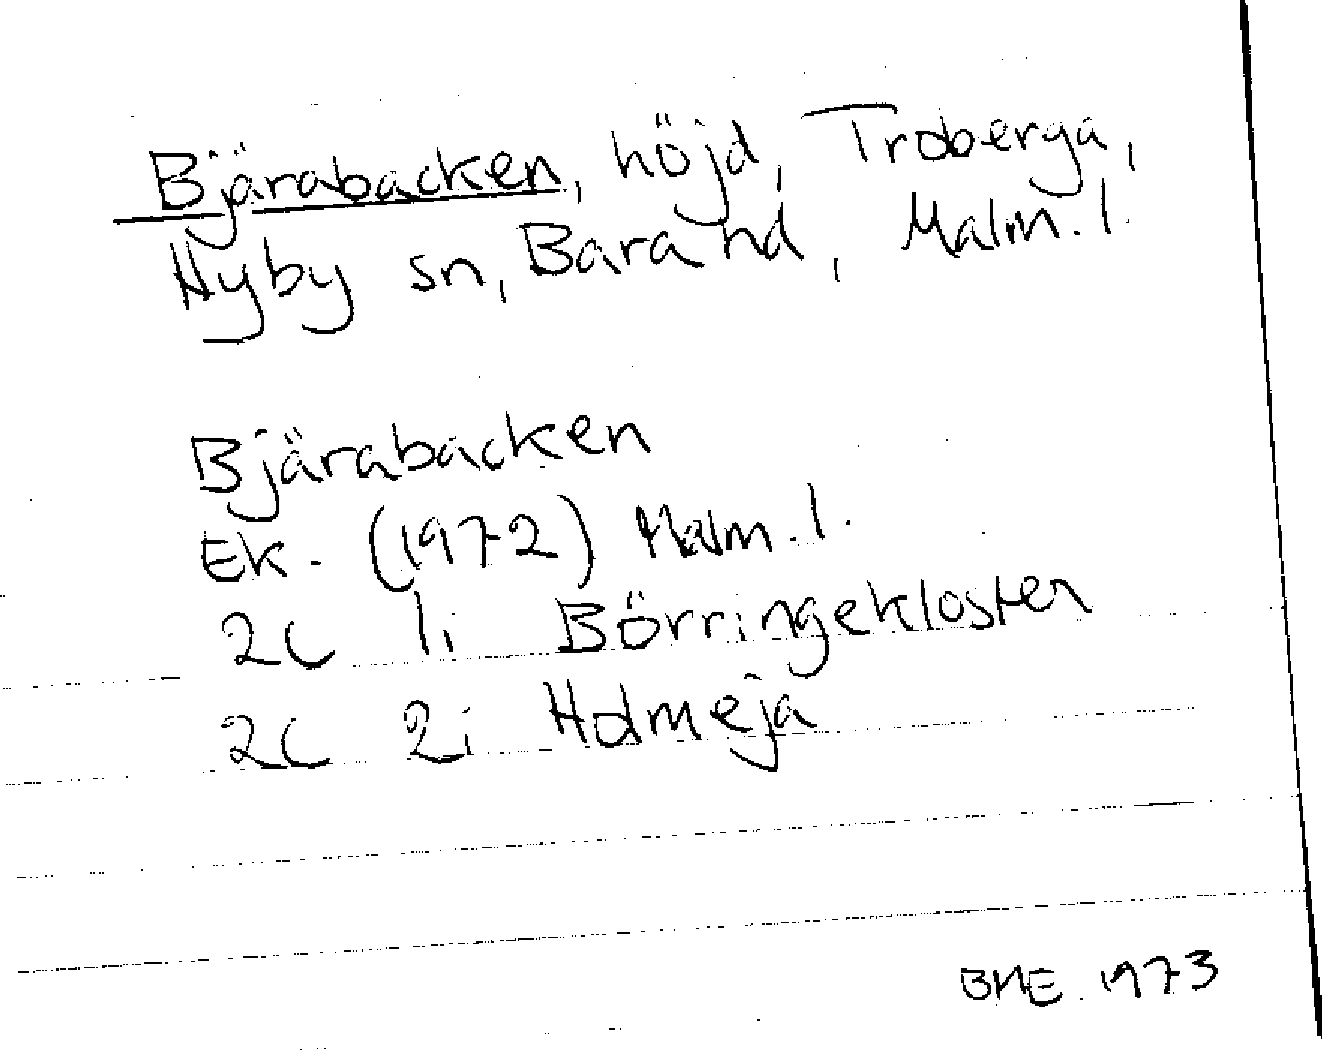 Bjärabacken, höjd, Troberga,
Hyby sn, Bara hd, Malm. l.
Bjärabacken
Ek. (1972) Malm. l.
2C 1i Börringekloster
2C 2i Holmeja
BHE. 1973